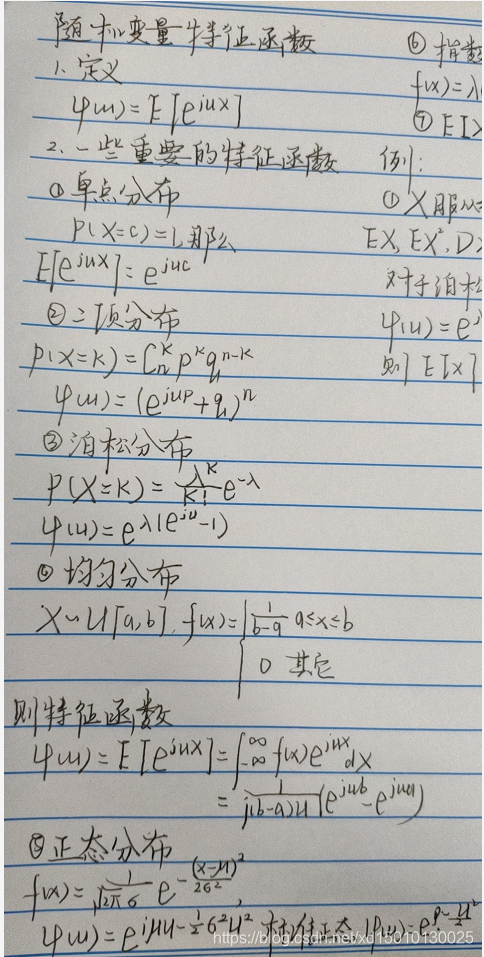 随机变量特征函数
1. 定义
φ(u) = E[e^{juX}]
2. 一些重要的特征函数
① 单点分布
P(X=c)=1, 那么
E[e^{juX}] = e^{juc}
② 二项分布
P(X=K) = C_n^K p^K q^{n-K}
φ(u) = (e^{jup}+q)^n
③ 泊松分布
P(X=K) = \frac{λ^K}{K!} e^{-λ}
φ(u) = e^{λ(e^{ju}-1)}
④ 均匀分布
X~U[a,b], f(x) = { \frac{1}{b-a} a≤x≤b
0 其它
则特征函数
φ(u) = E[e^{juX}] = ∫_{-∞}^{∞} f(x)e^{jux}dx
= \frac{1}{j(b-a)u}(e^{jub}-e^{jua})
⑤ 正态分布
f(x) = \frac{1}{\sqrt{2π}σ} e^{-\frac{(x-μ)^2}{2σ^2}},
φ(u) = e^{jμu-\frac{1}{2}σ^2u^2} 标准正态
⑥ 指数
f(x)=λ
⑦ E[X
例:
① X服从
EX, EX², D
对于泊松
φ(u)=e^λ
则 E[X]
https://blog.csdn.net/xd15010130025